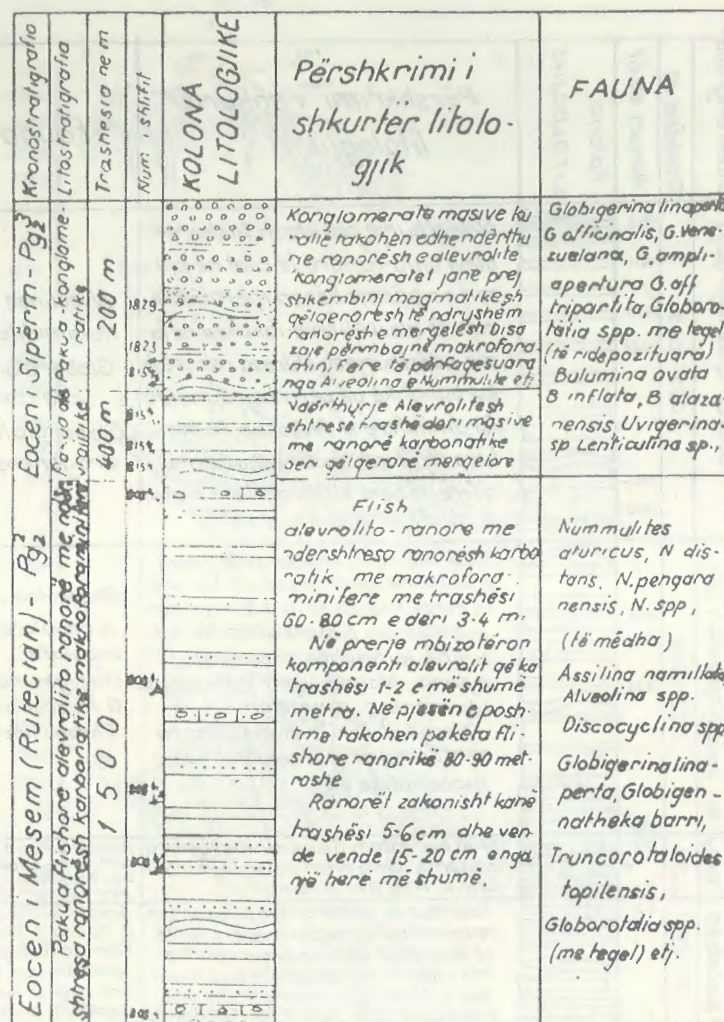 Kronostratigrafia
Litostratigrafia
Trashesia ne m
Num. i shlifit
KOLONA
LITOLOGJIKE
Përshkrimi i
shkurtër litolo-
gjik
FAUNA
Eoceni Sipërm - Pg₂³
Pakua - konglome-
ratike
200 m
1829
1823
815
Konglomerate masive ku
rallë takohen edhe ndërthu
rje ranorësh e alevrolite
Konglomeratet janë prej
shkëmbinj magmatikësh
gëlqerorësh të ndryshëm
ranorësh e mergelësh Disa
zaje përmbajnë makrofora-
minifere të përfaqësuara
nga Alveolina e Nummulite etj
Globigerina linaperta
G officinalis, G. vene-
zuelana, G. ampli-
apertura G. aff
tripartita, Globoro-
talia spp. me tegel
(të ridepozituara)
Bulumina ovata
B inflata, B alaza-
nensis Uvigerina
sp Lenticulina sp.,
400 m
815
815
815
Ndërthurje Alevrolitesh
shtresë trashë deri masive
me ranorë karbonatikë
deri gëlqerorë mergelorë
Eoceni Mesem (Rutecian) - Pg₂²
Pakua flishore alevrolito ranorë me ndër-
shtresa ranorësh karbonatikë makroforaminiferë
1500
Flish
alevrolito-ranore me
ndershtresa ranorësh karbo
natik, me makrofora-
minifere me trashësi
60-80 cm e deri 3-4 m.
Në prerje mbizotëron
komponenti alevrolit që ka
trashësi 1-2 e më shumë
metra. Në pjesën e posh
tme takohen paketa fli-
shore ranorikë 80-90 met-
roshe
Ranorët zakonisht kanë
trashësi 5-6 cm dhe ven-
de vende 15-20 cm e nga
një herë më shumë.
Nummulites
aturicus, N dis-
tans, N. pengara
nensis, N. spp,
(të mëdha)
Assilina namillata
Alveolina spp.
Discocyclina spp
Globigerina lina-
perta, Globigen-
natheka barri,
Truncorotaloides
topilensis,
Globorotalia spp.
(me tegel) etj.